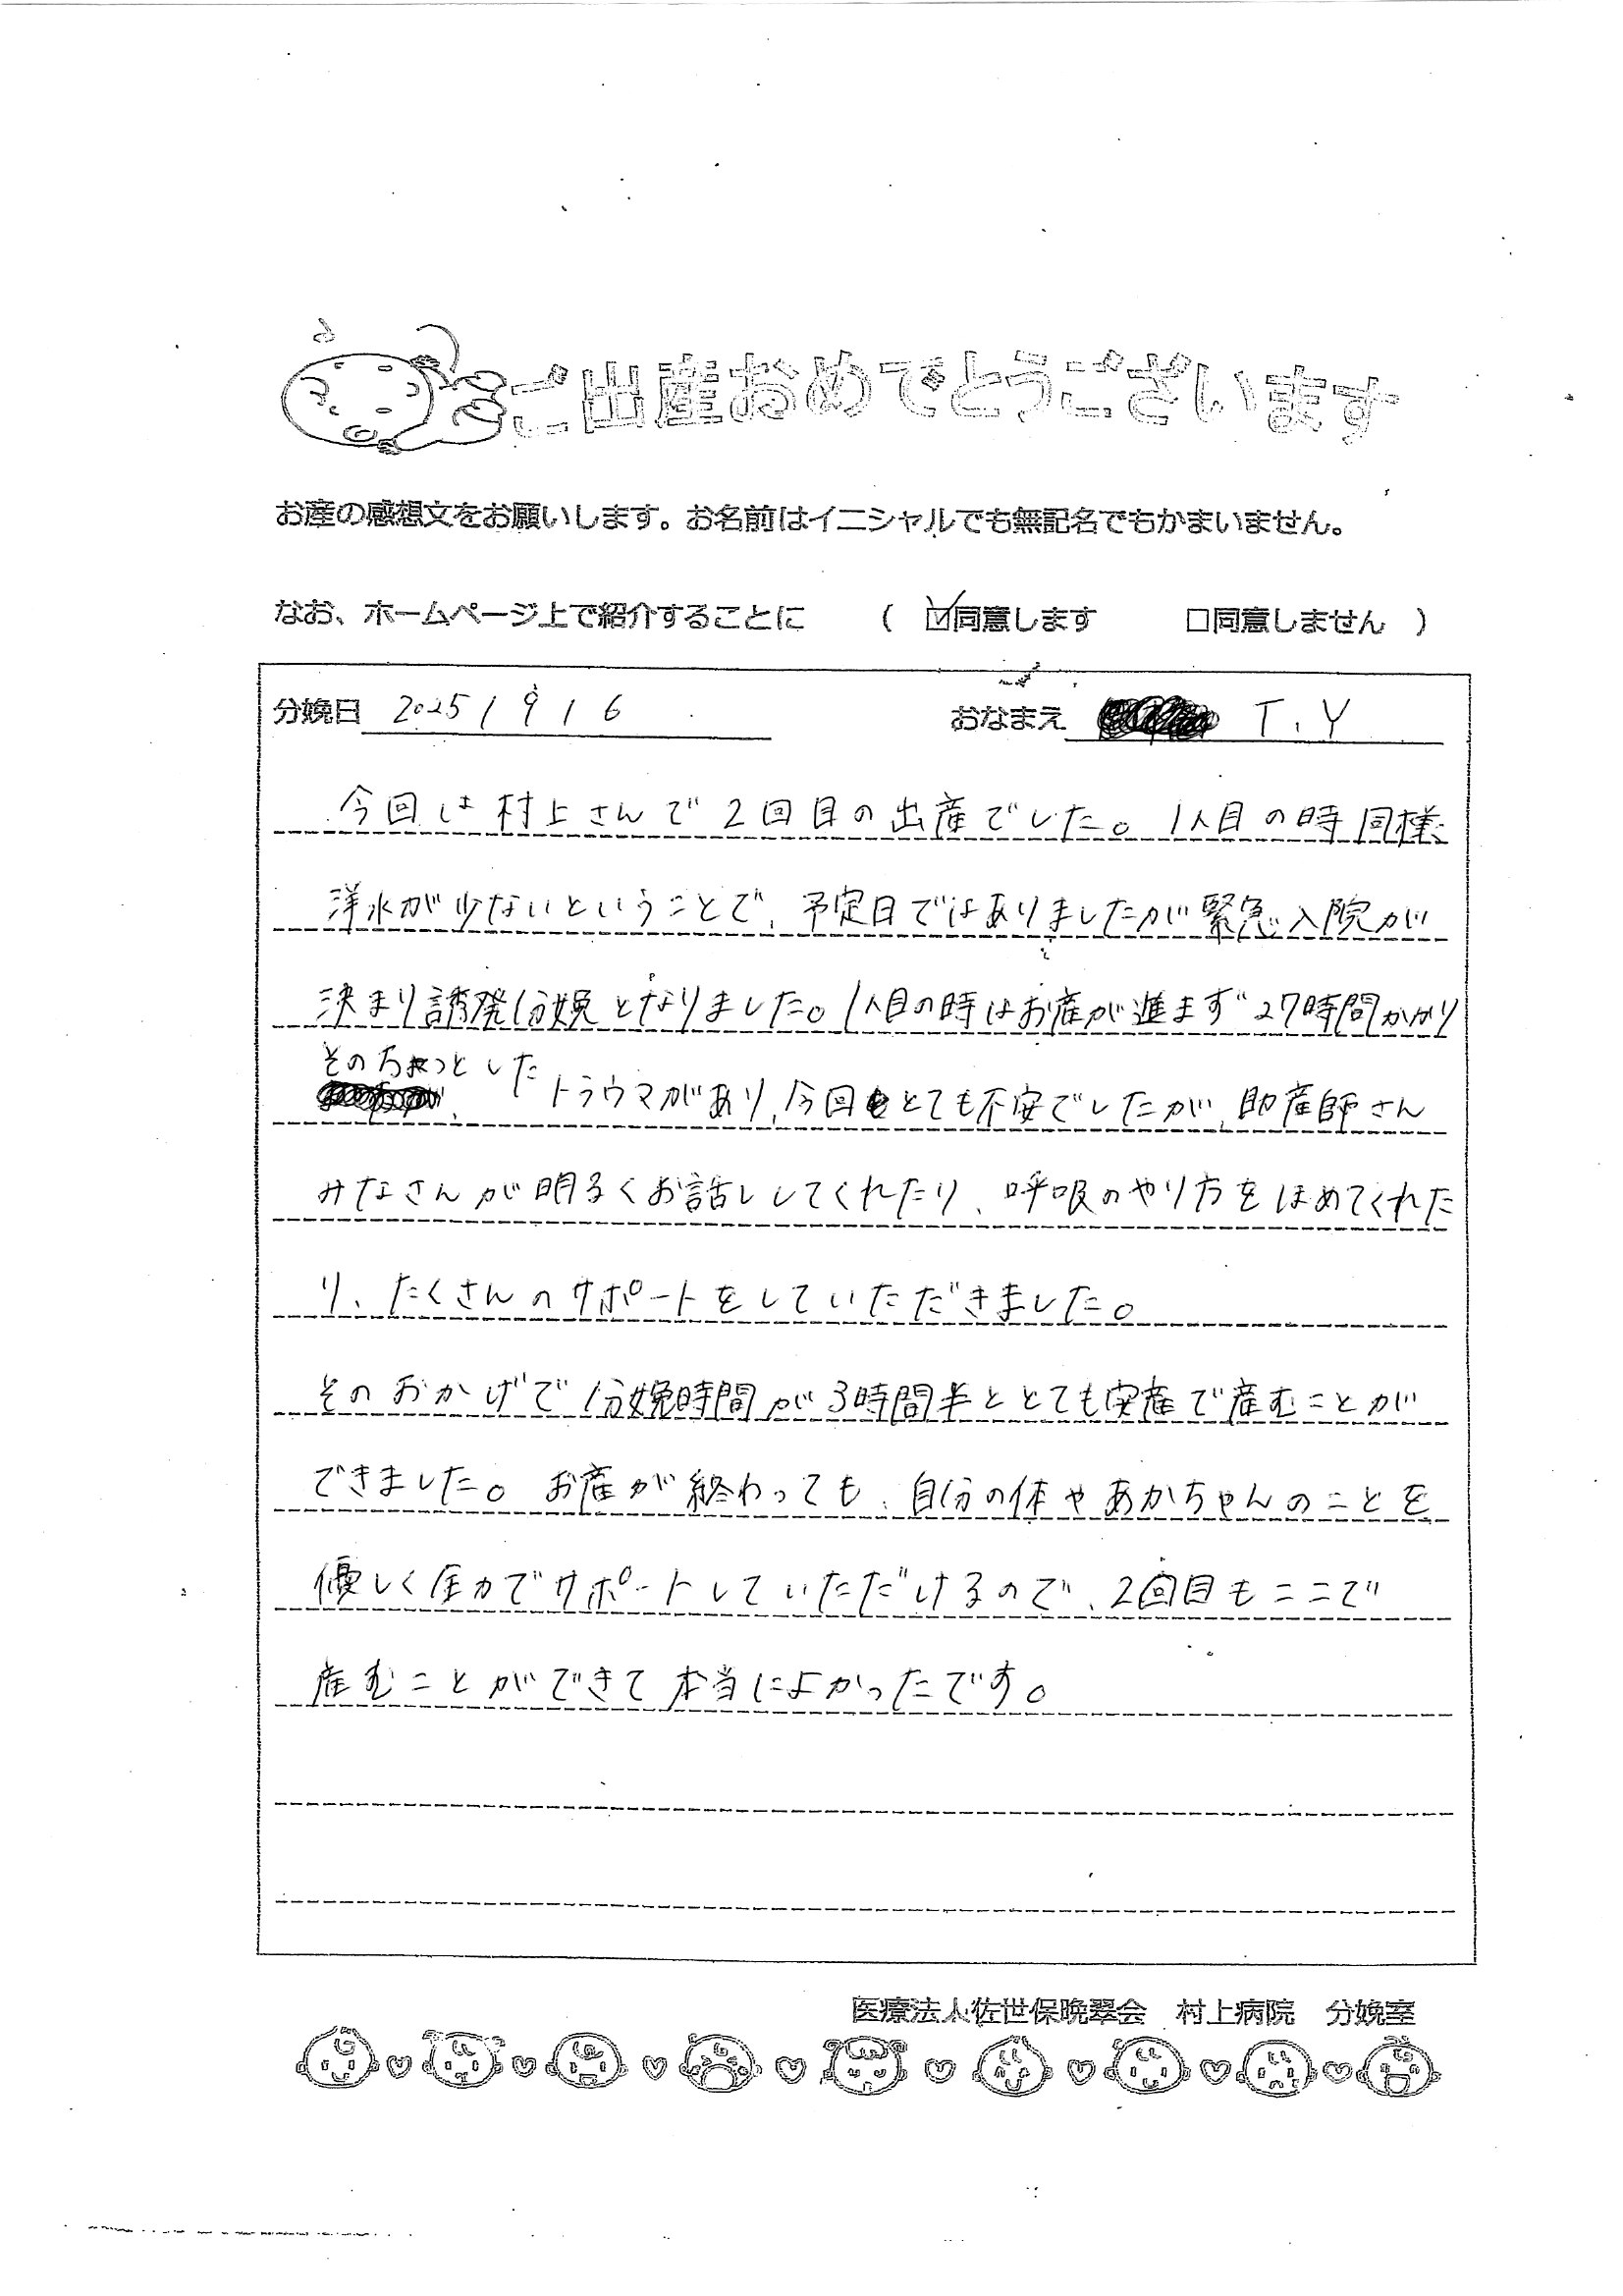 ご出産おめでとうございます
お産の感想文をお願いします。お名前はイニシャルでも無記名でもかまいません。
なお、ホームページ上で紹介することに ( ☑同意します □同意しません )
分娩日 2025 / 9 / 6 おなまえ T.Y
今回は村上さんで2回目の出産でした。1人目の時同様、
洋水が少ないということで、予定日ではありましたが緊急入院が
決まり誘発分娩となりました。1人目の時はお産が進まず27時間かかり
そのちょっとした
トラウマがあり、今回もとても不安でしたが、助産師さん
みなさんが明るくお話ししてくれたり、呼吸のやり方をほめてくれた
り、たくさんのサポートをしていただきました。
そのおかげで分娩時間が3時間半ととても安産で産むことが
できました。お産が終わっても、自分の体やあかちゃんのことを
優しく全力でサポートしていただけるので、2回目もここで
産むことができて本当によかったです。
医療法人佐世保晩翠会 村上病院 分娩室